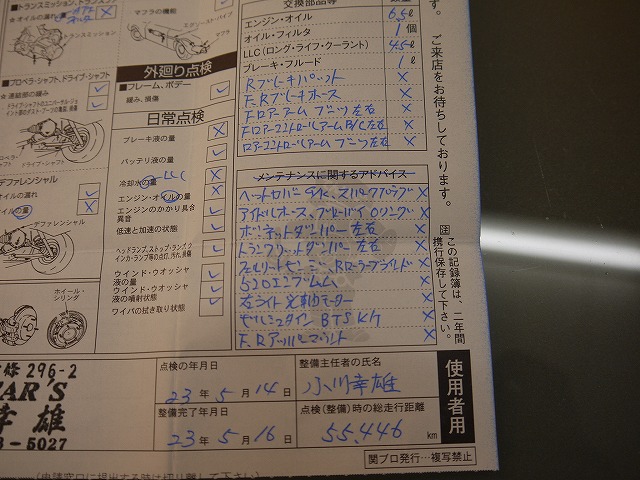 トランスミッション、トランスファ
オイルの漏れ
トランスミッション
プロペラ・シャフト、ドライブ・シャフト
連結部の緩み
ドライブ・シャフトのユニバーサル・ジョイント部のダスト・ブーツの亀裂、損傷
ドライブ・シャフト
デファレンシャル
オイルの漏れ
オイルの量
デファレンシャル
ホイール・シリンダ
マフラの機能
マフラ
外廻り点検
フレーム、ボデー
緩み、損傷
日常点検
ブレーキ液の量
バッテリ液の量
LLC
冷却水の量
エンジン・オイルの量
エンジンのかかり具合
異音
低速と加速の状態
ヘッドランプ、ストップ・ランプ、ウインカ・ランプ等の点灯、汚れ、損傷
ウインド・ウオッシャ液の量
ウインド・ウオッシャ液の噴射状態
ワイパの拭き取り状態
交換部品等
エンジン・オイル 6.5ℓ
オイル・フィルタ 1個
LLC（ロング・ライフ・クーラント） 4.5ℓ
ブレーキ・フルード 1ℓ
Rブレーキパット ×
F.Rブレーキホース ×
Fロアアーム ブーツ左右 ×
Fロアコントロールアーム B/C 左右 ×
ロアーコントロールアーム ブーツ左右 ×
メンテナンスに関するアドバイス
ボンネットダンパー 左右 ×
トランクリットダンパー 左右 ×
520エンブレム ×
右ライト光軸モーター ×
F.Rアッパーマウント ×
ご来店をお待ちしております。
注 この記録簿は、二年間携行保存して下さい。
使用者用
点検の年月日
23年5月14日
整備主任者の氏名
小川幸雄
整備完了年月日
23年5月16日
点検（整備）時の総走行距離
55,446 km
296-2
CAR'S
幸雄
3-5027
関ブロ発行…複写禁止